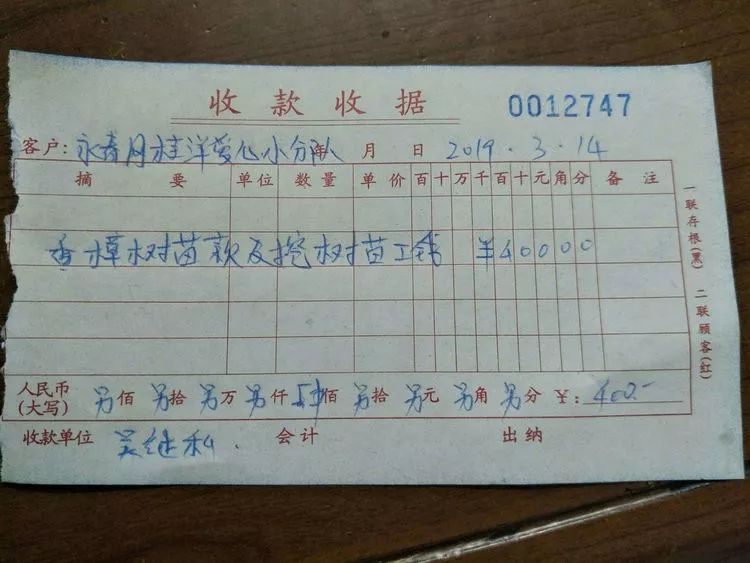 收款收据 0012747
客户: 永春月桂洋爱心小分队 年 月 日 2019.3.14
摘要 单位 数量 单价 百十万千百十元角分 备注
香樟树苗款及挖树苗工钱 ¥40000
人民币(大写) 另佰 另拾 另万 另仟 肆佰 另拾 另元 另角 另分 ¥: 400.-
收款单位 吴继和. 会计 出纳
一联存根(黑) 二联顾客(红)